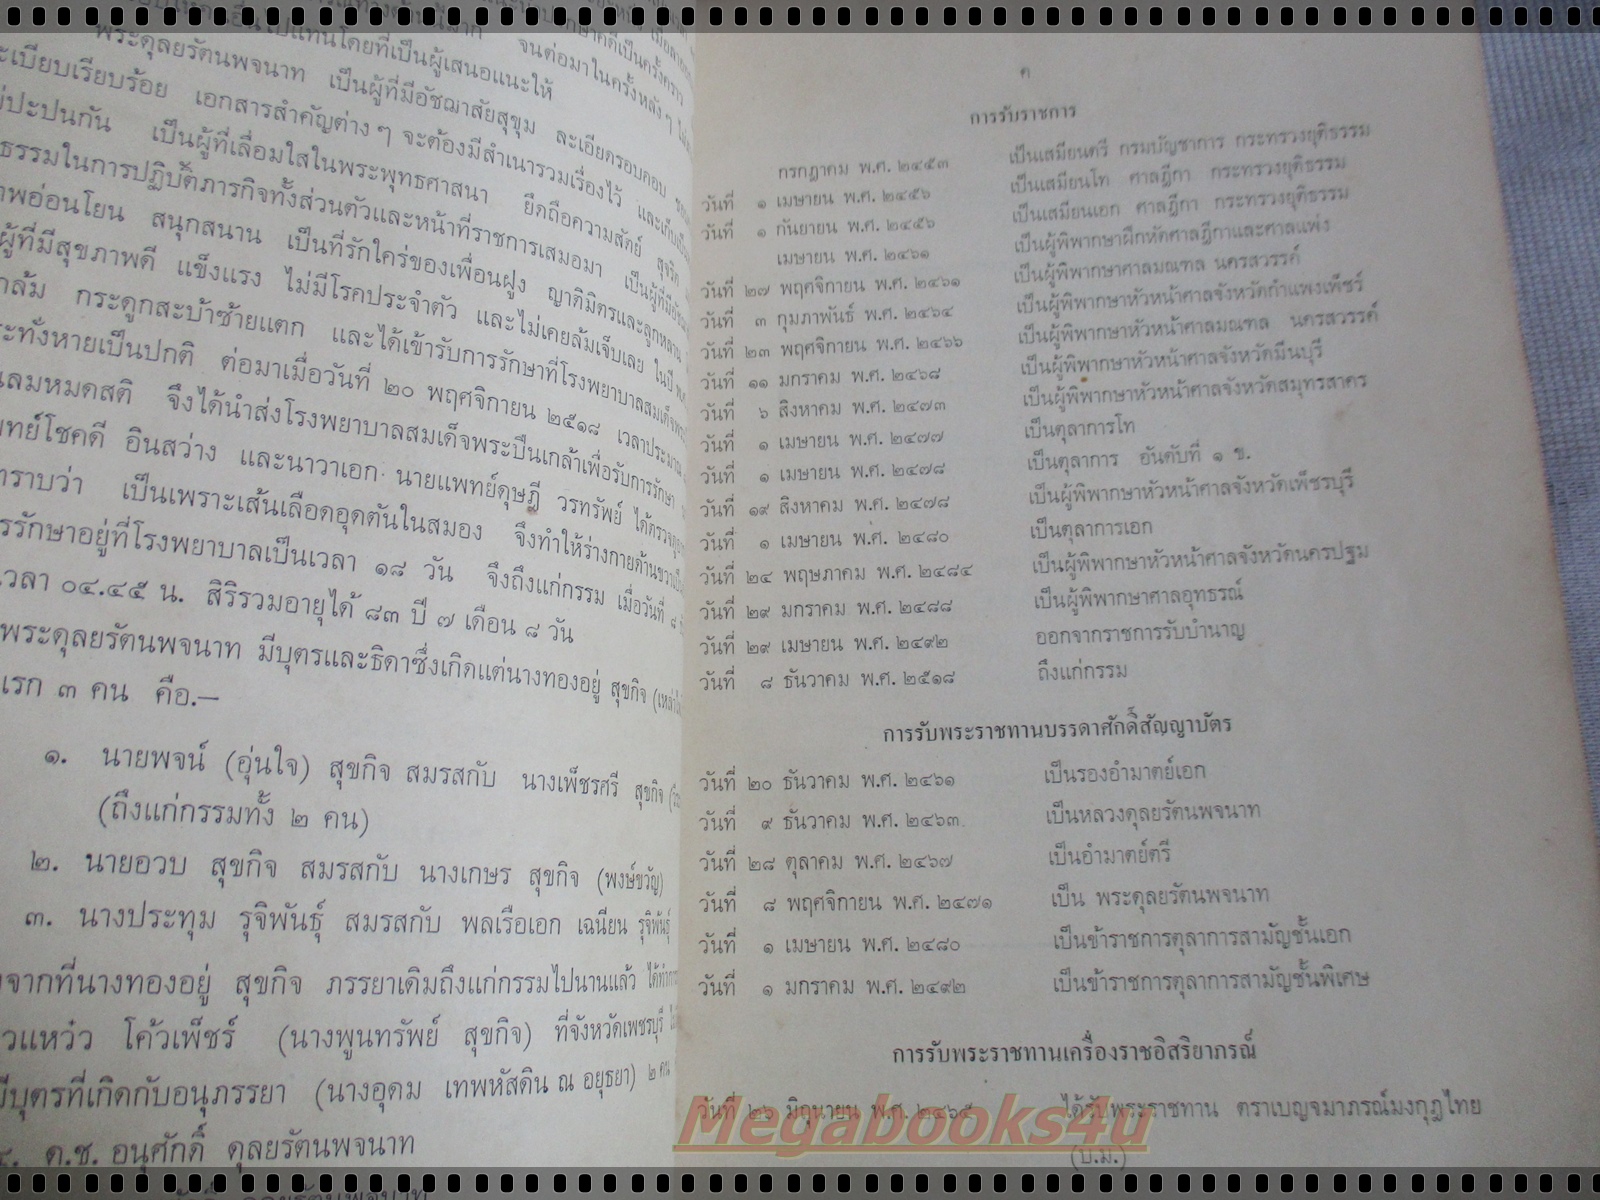 พระดุลยรัตนพจนาท เป็นผู้ที่มีอัชฌาสัยสุขุม ละเอียดรอบคอบ
ะเบียบเรียบร้อย เอกสารสำคัญต่าง ๆ จะต้องมีสำเนารวมเรื่องไว้ และเก็บเป็น
ปะปนกัน เป็นผู้ที่เลื่อมใสในพระพุทธศาสนา ยึดถือความสัตย์ สุจริต
ธรรมในการปฏิบัติภารกิจทั้งส่วนตัวและหน้าที่ราชการเสมอมา เป็นผู้ที่มี
าพอ่อนโยน สนุกสนาน เป็นที่รักใคร่ของเพื่อนฝูง ญาติมิตรและลูกหลาน
ผู้ที่มีสุขภาพดี แข็งแรง ไม่มีโรคประจำตัว และไม่เคยล้มเจ็บเลย ในปี พ.ศ.
กล้ม กระดูกสะบ้าซ้ายแตก และได้เข้ารับการรักษาที่โรงพยาบาลสมเด็จพระ
ะทั่งหายเป็นปกติ ต่อมาเมื่อวันที่ ๒๐ พฤศจิกายน ๒๕๑๘ เวลาประมาณ
นลมหมดสติ จึงได้นำส่งโรงพยาบาลสมเด็จพระปิ่นเกล้าเพื่อรับการรักษา
พทย์โชคดี อินสว่าง และนาวาเอก นายแพทย์ดุษฎี วรทรัพย์ ได้ตรวจ
ทราบว่า เป็นเพราะเส้นเลือดอุดตันในสมอง จึงทำให้ร่างกายด้านขวา
รรักษาอยู่ที่โรงพยาบาลเป็นเวลา ๑๘ วัน จึงถึงแก่กรรม เมื่อวันที่ ๘
เวลา ๐๔.๔๕ น. สิริรวมอายุได้ ๘๓ ปี ๗ เดือน ๘ วัน
พระดุลยรัตนพจนาท มีบุตรและธิดาซึ่งเกิดแต่นางทองอยู่ สุขกิจ
แรก ๓ คน คือ.—
๑. นายพจน์ (อุ่นใจ) สุขกิจ สมรสกับ นางเพ็ชรศรี สุขกิจ
(ถึงแก่กรรมทั้ง ๒ คน)
๒. นายอวบ สุขกิจ สมรสกับ นางเกษร สุขกิจ (พงษ์ขวัญ)
๓. นางประทุม รุจิพันธุ์ สมรสกับ พลเรือเอก เฉนียน รุจิพันธุ์
จากที่นางทองอยู่ สุขกิจ ภรรยาเดิมถึงแก่กรรมไปนานแล้ว
วแหว๋ว โค้วเพ็ชร์ (นางพูนทรัพย์ สุขกิจ) ที่จังหวัดเพชรบุรี
มีบุตรที่เกิดกับอนุภรรยา (นางอุดม เทพหัสดิน ณ อยุธยา) ๒ คน
๔. ด.ช. อนุศักดิ์ ดุลยรัตนพจนาท
ค
การรับราชการ
กรกฎาคม พ.ศ. ๒๔๕๓ เป็นเสมียนตรี กรมบัญชาการ กระทรวงยุติธรรม
วันที่ ๑ เมษายน พ.ศ. ๒๔๕๖ เป็นเสมียนโท ศาลฎีกา กระทรวงยุติธรรม
วันที่ ๑ กันยายน พ.ศ. ๒๔๕๖ เป็นเสมียนเอก ศาลฎีกา กระทรวงยุติธรรม
เมษายน พ.ศ. ๒๔๖๑ เป็นผู้พิพากษาฝึกหัดศาลฎีกาและศาลแพ่ง
วันที่ ๒๗ พฤศจิกายน พ.ศ. ๒๔๖๑ เป็นผู้พิพากษาศาลมณฑล นครสวรรค์
วันที่ ๓ กุมภาพันธ์ พ.ศ. ๒๔๖๔ เป็นผู้พิพากษาหัวหน้าศาลจังหวัดกำแพงเพ็ชร์
วันที่ ๒๓ พฤศจิกายน พ.ศ. ๒๔๖๖ เป็นผู้พิพากษาหัวหน้าศาลมณฑล นครสวรรค์
วันที่ ๑๑ มกราคม พ.ศ. ๒๔๖๘ เป็นผู้พิพากษาหัวหน้าศาลจังหวัดมีนบุรี
วันที่ ๖ สิงหาคม พ.ศ. ๒๔๗๓ เป็นผู้พิพากษาหัวหน้าศาลจังหวัดสมุทรสาคร
วันที่ ๑ เมษายน พ.ศ. ๒๔๗๗ เป็นตุลาการโท
วันที่ ๑ เมษายน พ.ศ. ๒๔๗๘ เป็นตุลาการ อันดับที่ ๑ ข.
วันที่ ๑๙ สิงหาคม พ.ศ. ๒๔๗๘ เป็นผู้พิพากษาหัวหน้าศาลจังหวัดเพ็ชรบุรี
วันที่ ๑ เมษายน พ.ศ. ๒๔๘๐ เป็นตุลาการเอก
วันที่ ๒๔ พฤษภาคม พ.ศ. ๒๔๘๔ เป็นผู้พิพากษาหัวหน้าศาลจังหวัดนครปฐม
วันที่ ๒๙ มกราคม พ.ศ. ๒๔๘๘ เป็นผู้พิพากษาศาลอุทธรณ์
วันที่ ๒๙ เมษายน พ.ศ. ๒๔๙๒ ออกจากราชการรับบำนาญ
วันที่ ๘ ธันวาคม พ.ศ. ๒๕๑๘ ถึงแก่กรรม
การรับพระราชทานบรรดาศักดิ์สัญญาบัตร
วันที่ ๒๐ ธันวาคม พ.ศ. ๒๔๖๑ เป็นรองอำมาตย์เอก
วันที่ ๙ ธันวาคม พ.ศ. ๒๔๖๓ เป็นหลวงดุลยรัตนพจนาท
วันที่ ๒๘ ตุลาคม พ.ศ. ๒๔๖๗ เป็นอำมาตย์ตรี
วันที่ ๘ พฤศจิกายน พ.ศ. ๒๔๗๑ เป็น พระดุลยรัตนพจนาท
วันที่ ๑ เมษายน พ.ศ. ๒๔๘๐ เป็นข้าราชการตุลาการสามัญชั้นเอก
วันที่ ๑ มกราคม พ.ศ. ๒๔๙๒ เป็นข้าราชการตุลาการสามัญชั้นพิเศษ
การรับพระราชทานเครื่องราชอิสริยาภรณ์
วันที่ ๒๖ มิถุนายน พ.ศ. ๒๔๖๕ ได้รับพระราชทาน ตราเบญจมาภรณ์มงกุฎไทย
(บ.ม.)
Megabooks4u